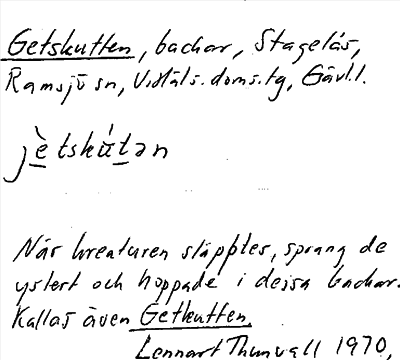 Getskutten, backar, Stagelås,
Ramsjö sn, V. Häls. doms.tg, Gävl.l.
jètskút̲ən
När kreaturen släpptes, sprang de
ystert och hoppade i dessa backar.
Kallas även Getkutten.
Lennart Thunvall 1970,